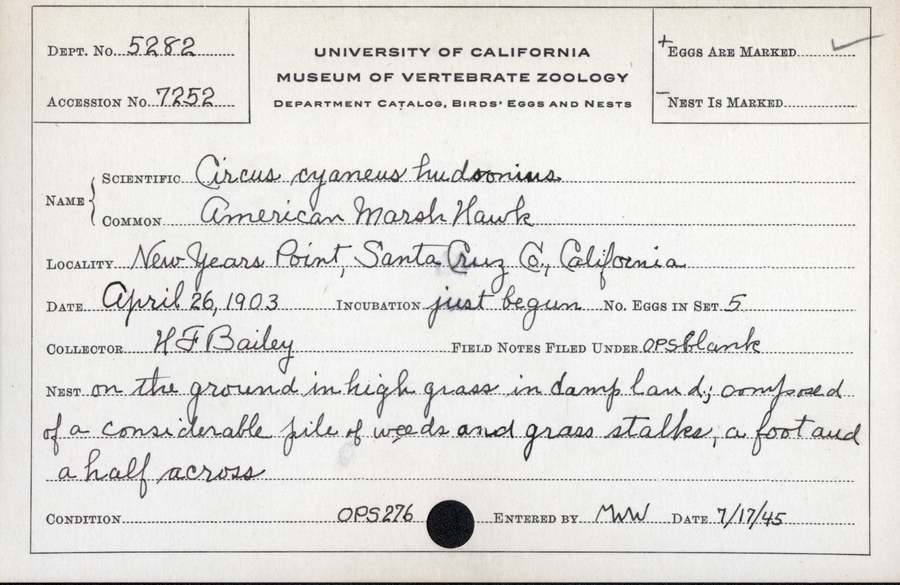 DEPT. NO. 5282
ACCESSION NO. 7252
UNIVERSITY OF CALIFORNIA
MUSEUM OF VERTEBRATE ZOOLOGY
DEPARTMENT CATALOG, BIRDS' EGGS AND NESTS
+ EGGS ARE MARKED ✓
– NEST IS MARKED
NAME { SCIENTIFIC Circus cyaneus hudsonius
COMMON American Marsh Hawk
LOCALITY New Years Point, Santa Cruz Co., California
DATE April 26, 1903 INCUBATION just begun NO. EGGS IN SET 5
COLLECTOR H F Bailey FIELD NOTES FILED UNDER OPS blank
NEST on the ground in high grass in damp land; composed
of a considerable pile of weeds and grass stalks, a foot and
a half across
CONDITION OPS 276 ENTERED BY MWW DATE 7/17/45